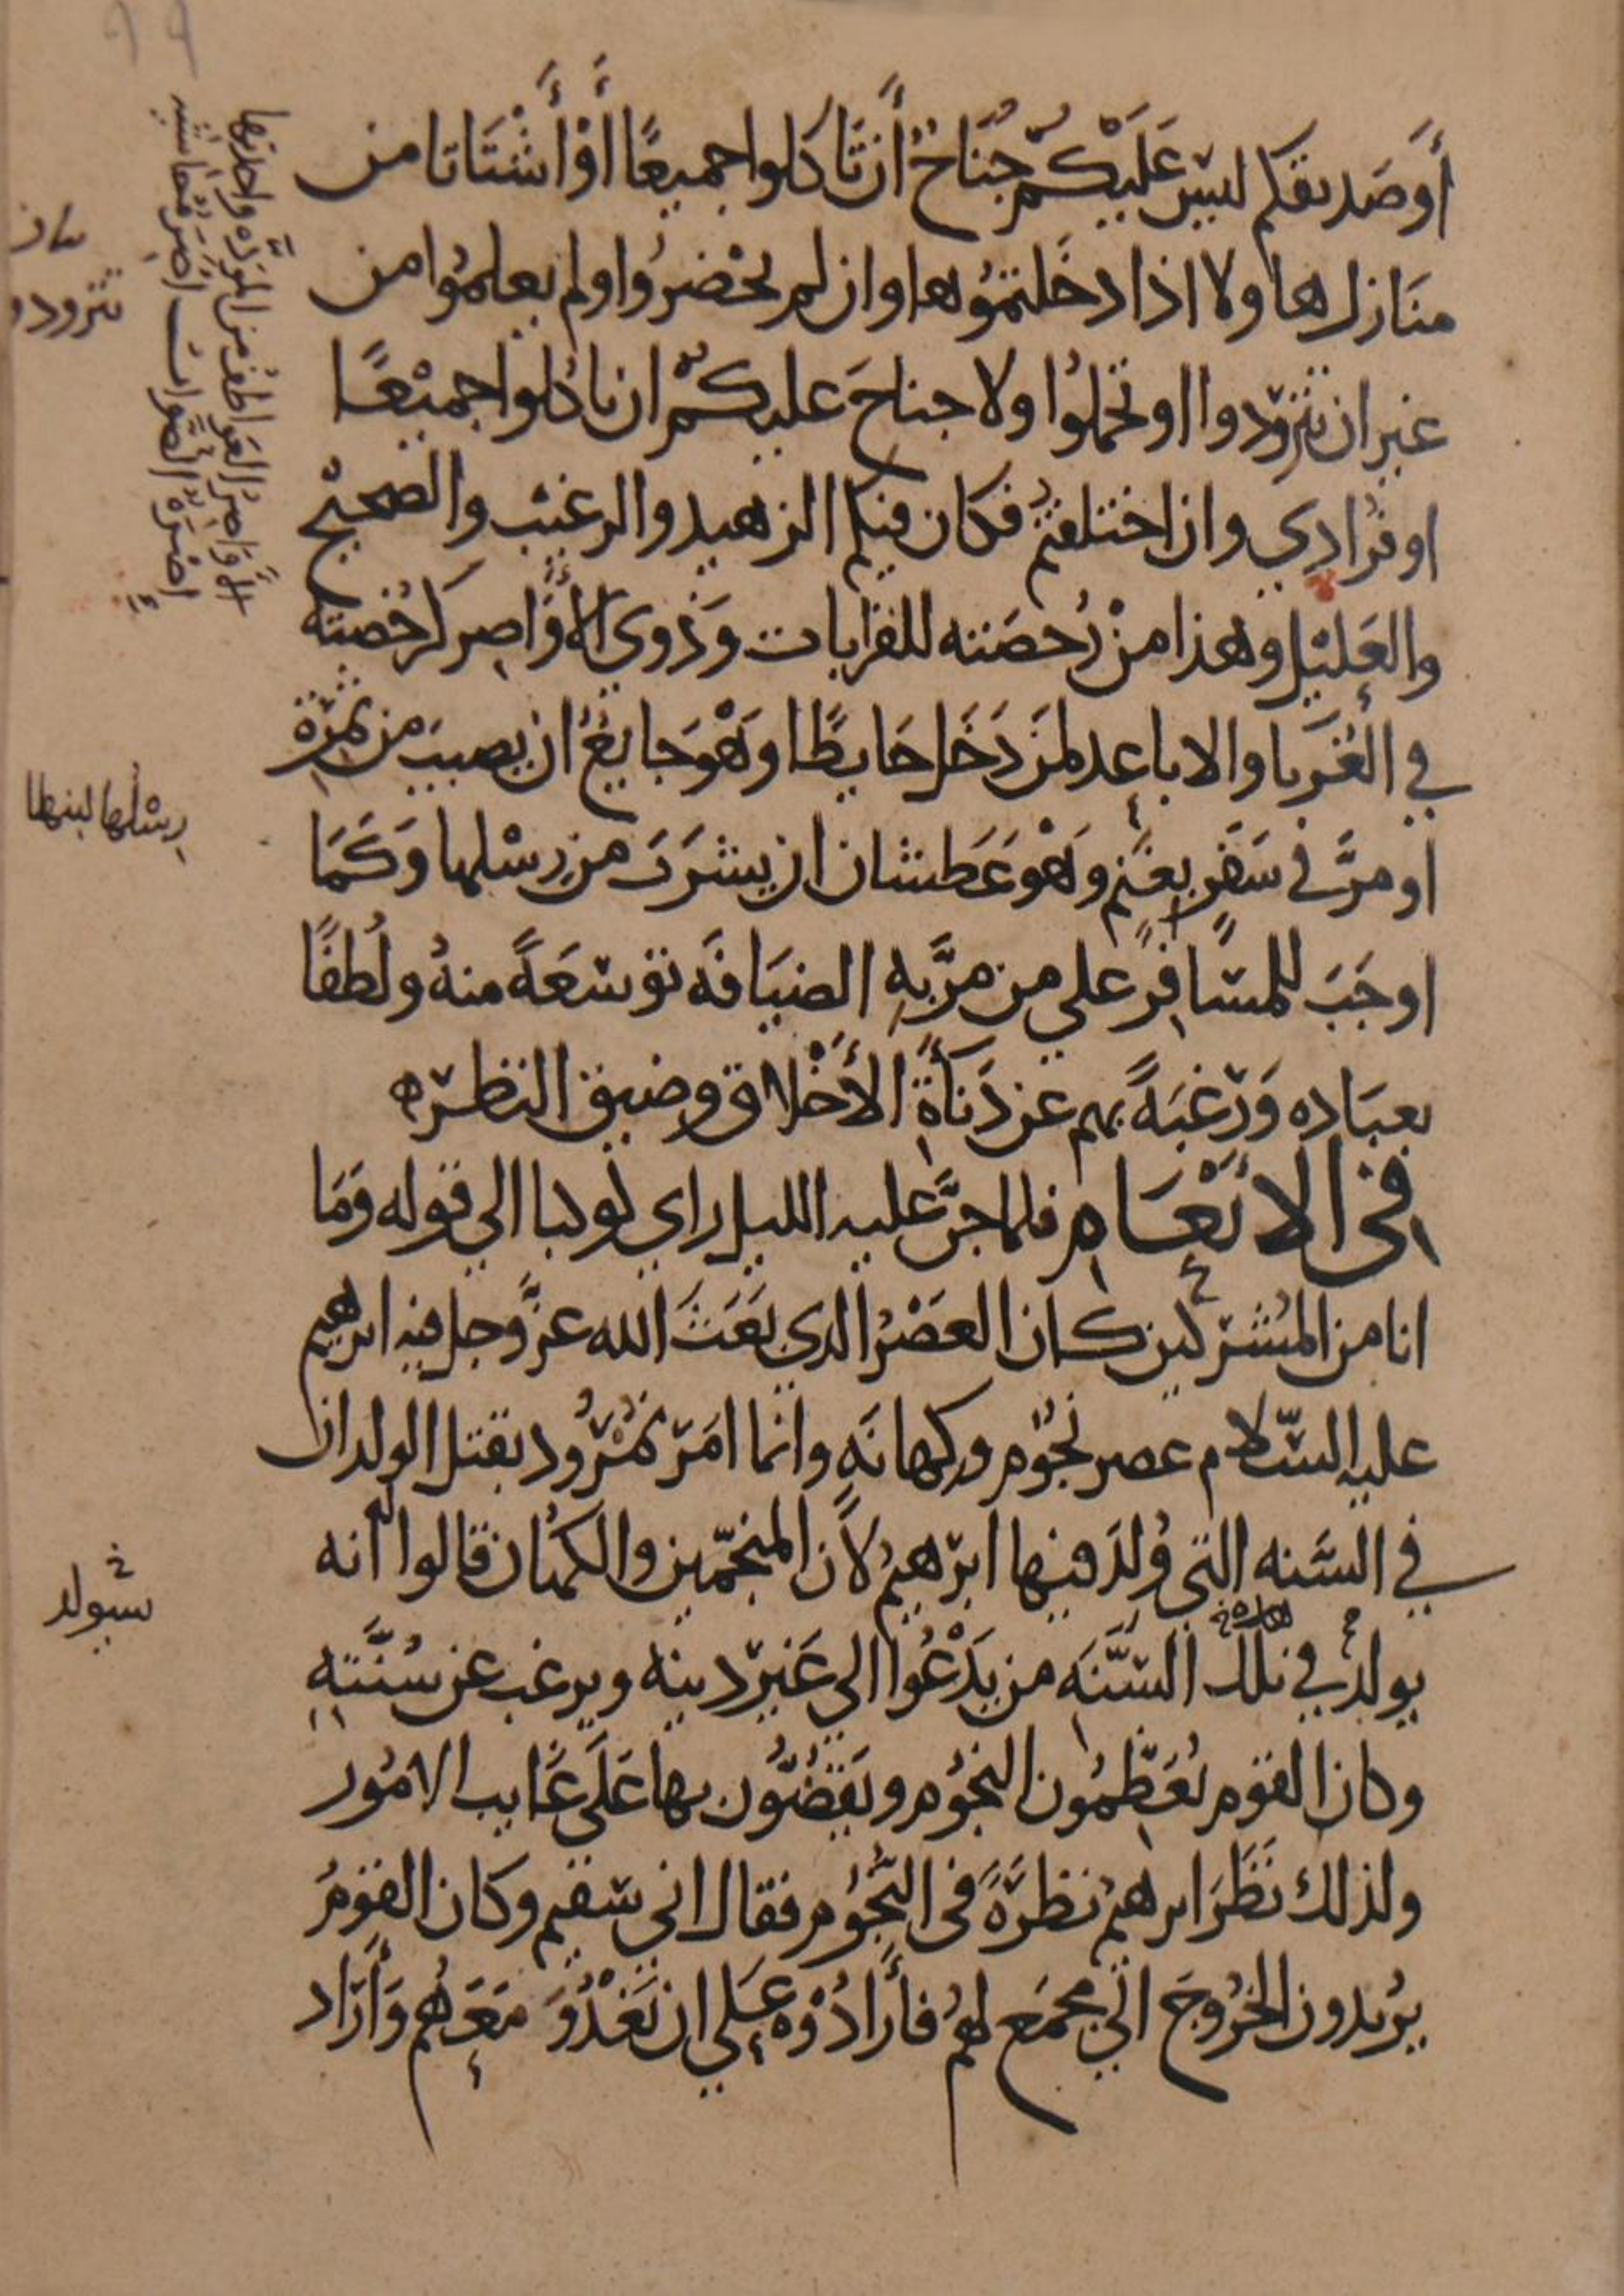 أو صديقكم ليس عَلَيْكُم جُنَاحٌ أَن تَأكلوا جميعًا أَوْ أَشْتَاتا من
منَازلها ولا اذا دخَلتمُوُها وان لم يحْضرُوا ولم يعلمُوا من
غير ان تتزوّدوا او تحملُوا ولا جناحَ عليكمْ ان تاكلوا جميْعًا
او فُرَادي وان اختلفتم فكان فيكم الزهيد والرغيب والصحيْح
والعَليْل وهذا منْ رُخصَته للقرابات وَذوي الأَوَاصِر كرُخصته
في الغُرَبا والاباعد لمن دَخَل حَايطًا وَهْوَ جايعُ ان يصيبَ من ثمَرَة
او مرَّ في سَفَرٍ بغنَمٍ وَهْوَ عَطشان ان يشرَبَ من رِسْلها وَكَمَا
اوجَبَ للمسَافِر علي من مرَّ بهِ الضيَافَه توْسعَةً منهُ ولُطفًا
بعبَاده وَرَغبَةً بهم عن دَنَأةِ الأَخْلاق وضيق النظره
في الأنْعَام فلما جنَّ عليه الليل راي كوكبا الي قوله وَمَا
انا من المُشركين كان العَصْرُ الذي بَعَثَ الله عزَّوجل فيه ابرهيم
عليه السّلام عصر نجُوُمٍ وكهانَهٍ وانما امَرَ نمْرُود بقتل الولدان
في السَّنه التي وُلدَ فيها ابرهيمُ لأن المنجّمين والكهّان قالوا له انه
يولدُ في تلك السَّنَه من يَدْعُوا الي غَير دينه ويرغب عن سُنَّتهِ
وكان القوم يُعَظّمُون النجُوُم ويَقضُوُن بها عَلَي غَايب الامُور
ولذلك نَظَرَ ابرهيمُ نظرَةً في النُّجُوُم فقال اني سقيم وكان القوْمُ
يرُيدون الخرُوجَ الي مجمَع لهُم فأَرَادُوْه عَلي ان يَغْدُوَ مَعَهُم وَأَرَاد
تتزودو
رِسْلُها لبنها
سيولد